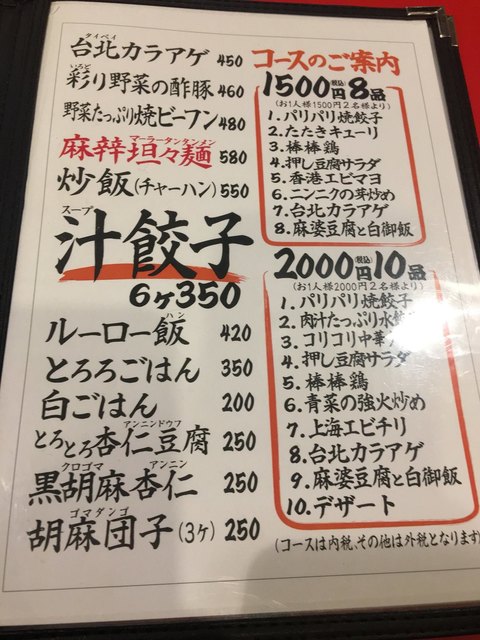 タイペイ
台北カラアゲ 450
いろど
彩り野菜の酢豚 460
野菜たっぷり焼ビーフン 480
マーラータンタンメン
麻辛坦々麺 580
炒飯(チャーハン) 550
スープ
汁餃子
6ヶ350
ハン
ルーロー飯 420
とろろごはん 350
白ごはん 200
アンニンドウフ
とろとろ杏仁豆腐 250
クロゴマ アンニン
黒胡麻杏仁 250
ゴマダンゴ
胡麻団子(3ヶ) 250
コースのご案内
1500円(税込)8品
(お1人様1500円2名様より)
1.パリパリ焼餃子
2.たたきキューリ
3.棒棒鶏
4.押し豆腐サラダ
5.香港エビマヨ
6.ニンニクの芽炒め
7.台北カラアゲ
8.麻婆豆腐と白御飯
2000円(税込)10品
(お1人様2000円2名様より)
1.パリパリ焼餃子
2.肉汁たっぷり水餃
3.コリコリ中華
4.押し豆腐サラダ
5.棒棒鶏
6.青菜の強火炒め
7.上海エビチリ
8.台北カラアゲ
9.麻婆豆腐と白御飯
10.デザート
(コースは内税、その他は外税となります)